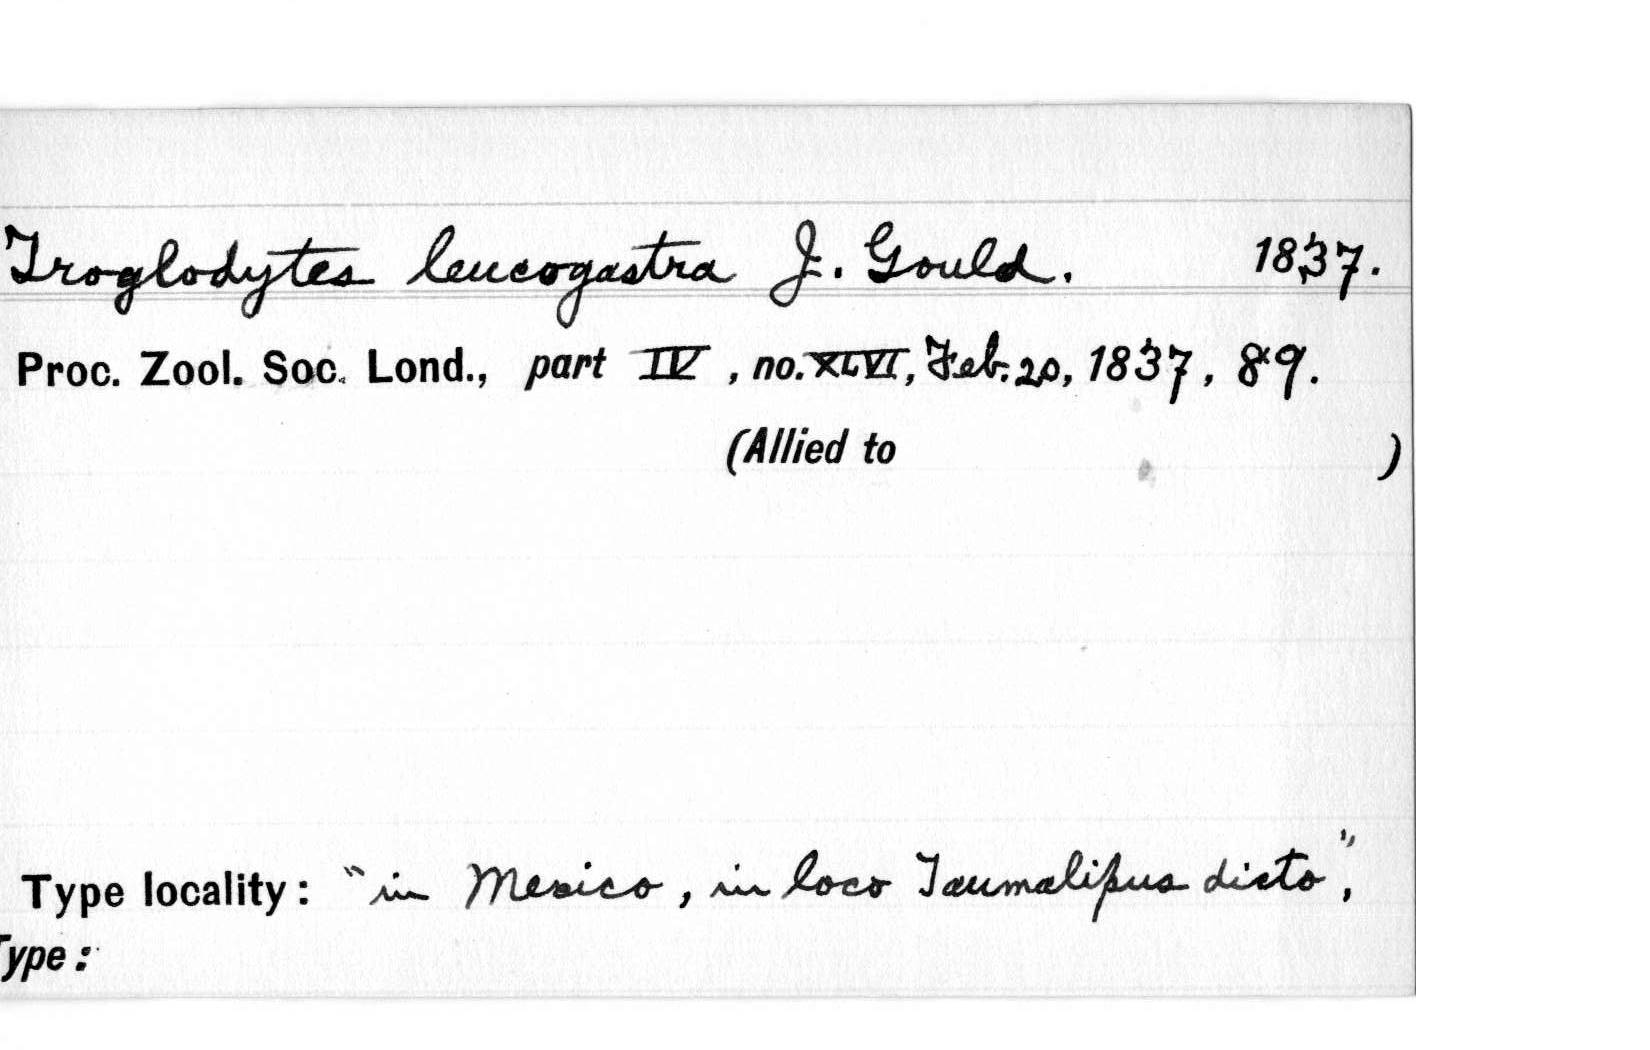 Troglodytes leucogastra J. Gould. 1837.
Proc. Zool. Soc. Lond., part IV, no. XLVI, Feb. 20, 1837, 89.
(Allied to )
Type locality: "in Mexico, in loco Taumalipus dicto",
Type: